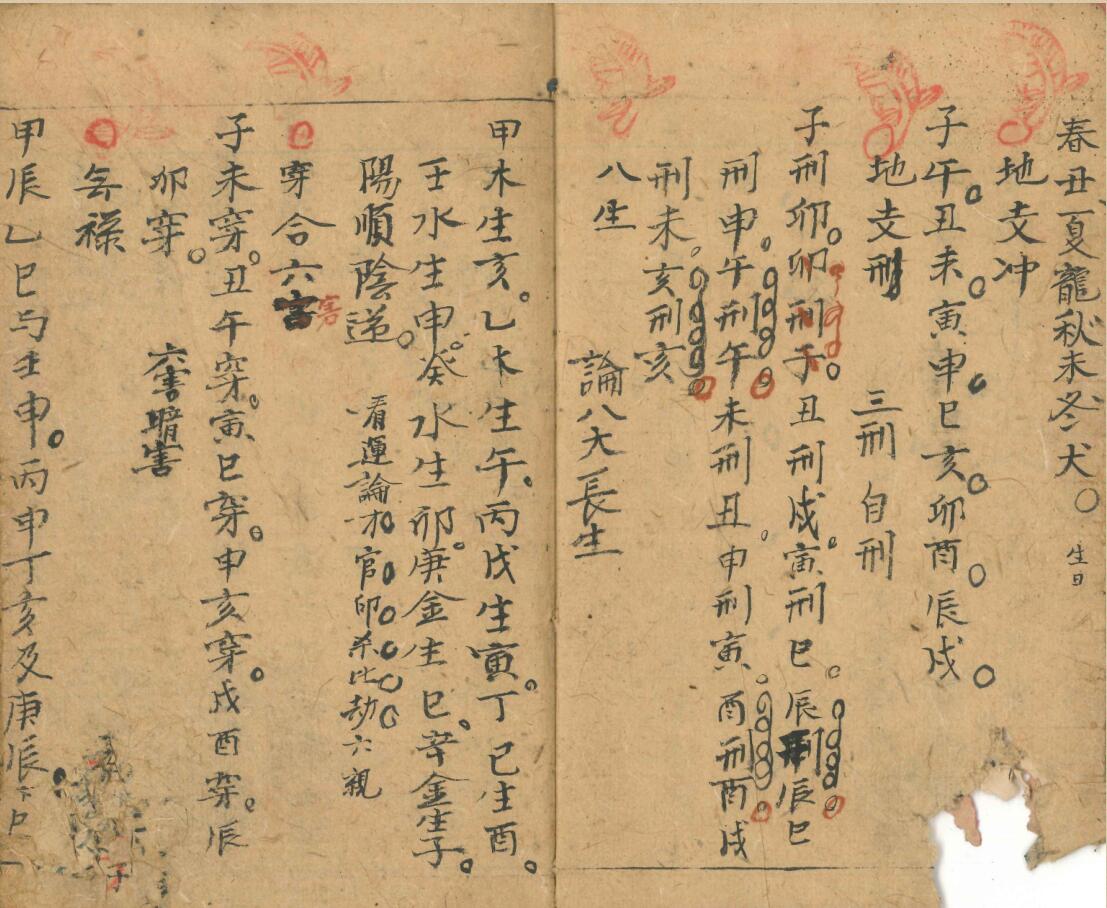 春丑夏龍秋未冬犬。 生日
地支冲
子午。丑未。寅申。巳亥。卯酉。辰戌。
地支刑 三刑 自刑
子刑卯。卯刑子。丑刑戌。寅刑巳。辰刑辰。巳
刑申。午刑午。未刑丑。申刑寅。酉刑酉。戌
刑未。亥刑亥
八生 論八大長生
甲木生亥。乙木生午。丙戊生寅。丁巳生酉。
壬水生申。癸水生卯。庚金生巳。辛金生子。
陽順陰逆。 看運論才官印杀比劫六親
穿合六害 害
子未穿。丑午穿。寅巳穿。申亥穿。戌酉穿。辰
卯穿。 六害暗害
無祿
甲辰乙巳与壬申。丙申丁亥及庚辰。